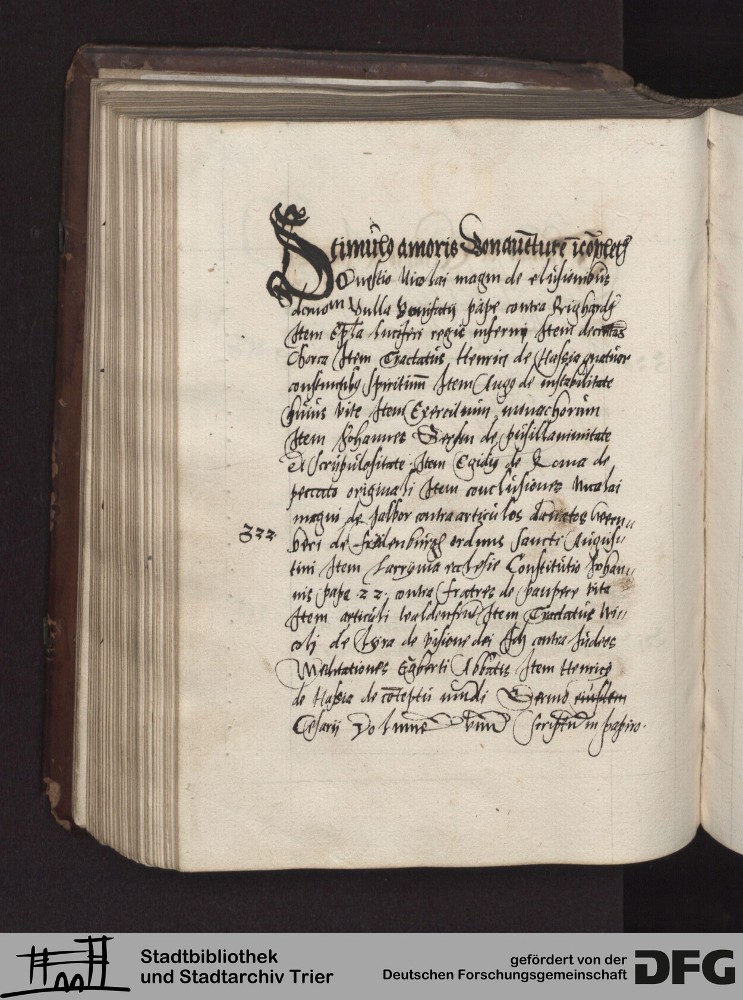 Stimul9 amoris Bonauẽture ĩcõplet9
Questio Nicolai magni de elusionibus
demonũ Bulla Bonifatij pape contra Bighardos
Item Epla luciferi regis inferni Item
Item Tractatus Henrici de Hassia quatuor
Spirituum Item Hugo de instabilitate
huius vite Item Exercitium monachorum
Item Johannes Gerson de pusillanimitate
Et scrupulositate Item Egidij de Roma de
peccato originali Item conclusiones Nicolai
magni de Jabbor contra articulos donatos
322
de ordinis sancti Augus„
tini Item Lacryma ecclesie Constitutio Johan„
nis pape 22 contra fratres de paupere vita
Item articuli waldensiũ Item Tractatus Ni„
colj de Lyra de visione dei contra Judeos
Meditationes Egberti Abbatis Item Henrici
de Hassia de cõteptu mũdi Sermo eiusdem
Cesarij Volumẽ vnũ scriptũ in papiro.
Stadtbibliothek
und Stadtarchiv Trier
gefördert von der
Deutschen Forschungsgemeinschaft
DFG